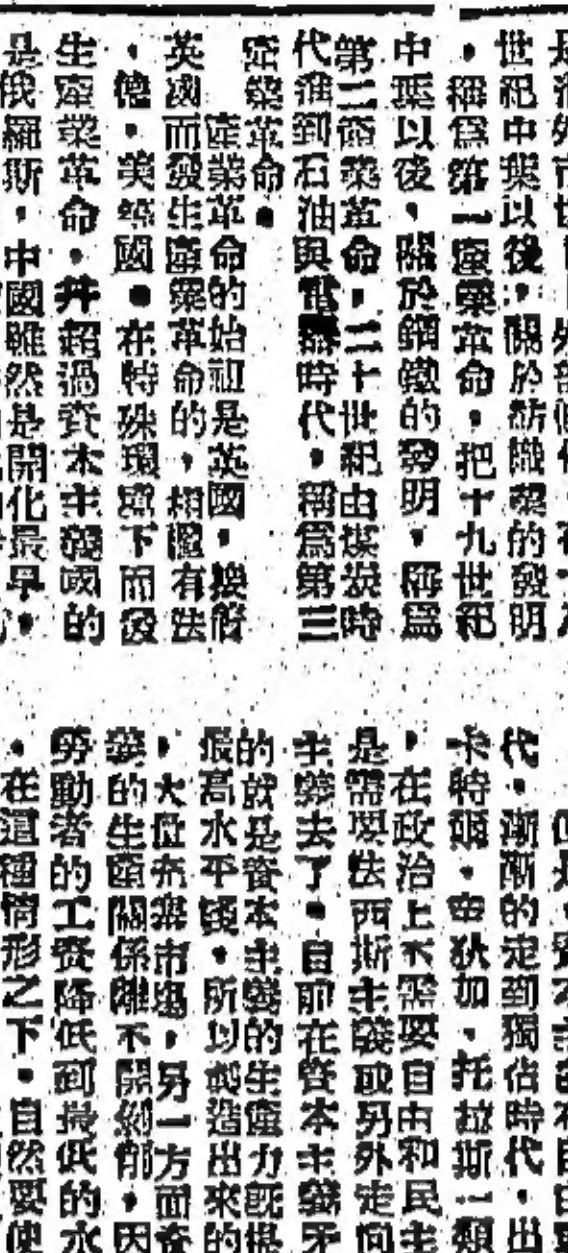 世紀中葉以後，關於紡織業的發明
，稱為第一產業革命，把十九世紀
中葉以後，關於鋼鐵的發明，稱為
第二產業革命，二十世紀由煤炭時
代進到石油與電器時代，稱為第三
產業革命。
產業革命的始祖是英國，接着
英國而發生產業革命的，相繼有法
、德、美等國。在特殊環境下而發
生產業革命，并超過資本主義國的
是俄羅斯，中國雖然是開化最早，
代。漸漸的走到獨佔時代，出
卡特爾、辛狄加、托拉斯一類
，在政治上不需要自由和民主
是需要法西斯主義或另外走向
主義去了。目前在資本主義矛
的就是資本主義的生產力旣提
最高水平後，所以製造出來的
，大量充斥市場，另一方面資
義的生產關係離不開剝削，因
勞動者的工資降低到最低的水
。在這種情形之下，自然要使